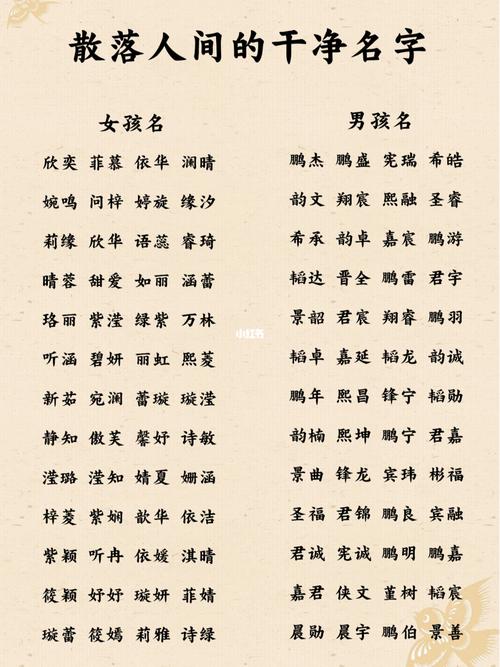 散落人间的干净名字
女孩名
欣奕 菲慕 依华 澜晴
婉鸣 问梓 婷旋 缘汐
莉缘 欣华 语蕊 睿琦
晴蓉 甜爱 如丽 涵蕾
珞丽 紫滢 绿紫 万林
听涵 碧妍 丽虹 熙菱
新茹 宛澜 蕾璇 璇滢
静知 傲芙 馨妤 诗敏
滢璐 滢知 婧夏 姗涵
梓菱 紫娴 歆华 依洁
紫颖 听冉 依媛 淇晴
筱颖 妤妤 璇妍 菲婧
璇蕾 筱嫣 莉雅 诗绿
男孩名
鹏杰 鹏盛 宪瑞 希皓
韵文 翔宸 熙融 圣睿
希承 韵卓 嘉宸 鹏游
韬达 晋全 鹏雷 君宇
景韶 君宸 翔睿 鹏羽
韬卓 嘉延 韬龙 韵诚
鹏年 熙昌 锋宁 韬勋
韵楠 熙坤 鹏宁 君嘉
景曲 锋龙 宾玮 彬福
圣福 君锦 鹏良 宾融
君诚 宪诚 鹏明 鹏嘉
嘉君 侠文 堇树 韬宸
晨勋 晨宇 鹏伯 景善
小红书